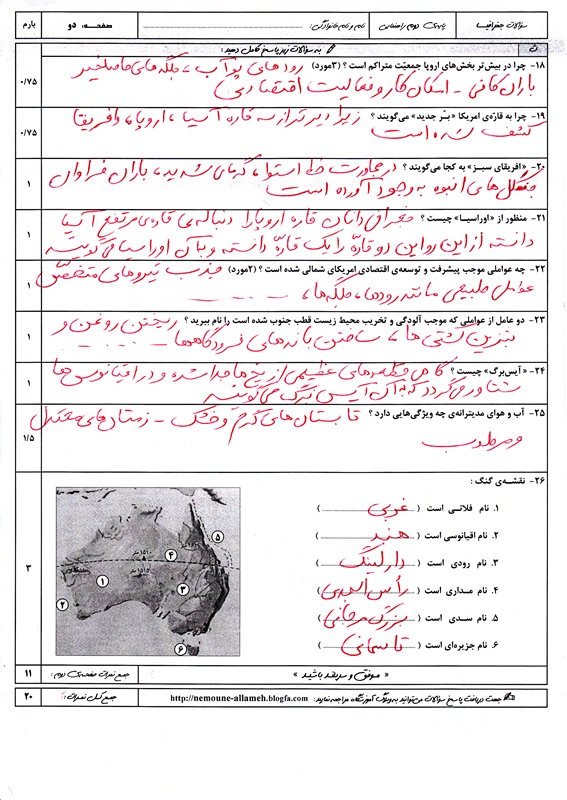 سؤالات جغرافیا پایه‌ی دوم راهنمایی نام و نام خانوادگی: صفحه‌ی دو بارم
به سؤالات زیر پاسخ کامل دهید:
۱۸- چرا در بیش‌تر بخش‌های اروپا جمعیّت متراکم است ؟ (۳مورد) رودهای پر آب ، جلگه‌های حاصلخیز
باران کافی - امکان کار و فعالیت اقتصادی
۰/۷۵
۱۹- چرا به قارّه‌ی امریکا «برّ جدید» می‌گویند ؟ زیرا دیرتر از سه قاره آسیا ، اروپا ، و افریقا
کشف شده است
۰/۷۵
۲۰- «افریقای سبز» به کجا می‌گویند ؟ در مجاورت خط استوا ، گرمای شدید ، باران فراوان
جنگل‌های انبوه به وجود آورده است
۱
۲۱- منظور از «اوراسیا» چیست ؟ جغرافی دانان قاره اروپا را دنباله‌ی قاره‌ی مرتفع آسیا
دانسته از این رو این دو قاره را یک قارّه دانسته و به آن اوراسیا می‌گویند
۱
۲۲- چه عواملی موجب پیشرفت و توسعه‌ی اقتصادی امریکای شمالی شده است ؟ (۲مورد) جذب نیروهای متخصّص
عوامل طبیعی مانند رودها ، جلگه‌ها ،
۱
۲۳- دو عامل از عواملی که موجب آلودگی و تخریب محیط زیست قطب جنوب شده است را نام ببرید ؟ ریختن روغن و
بنزین کشتی‌ها ، ساختن باندهای فرودگاه‌ها
۱
۲۴- «آیس‌برگ» چیست ؟ گاهی قطعه‌های عظیمی از یخ‌ها جدا شده و در اقیانوس‌ها
شناور می‌گردد که به آن آیس برگ می‌گویند
۱
۲۵- آب و هوای مدیترانه‌ی چه ویژگی‌هایی دارد ؟ تابستان‌های گرم و خشک - زمستان‌های معتدل
و مرطوب
۱/۵
۲۶- نقشه‌ی گنگ :
۱. نام فلاتی است ( غربی )
۲. نام اقیانوسی است ( هند )
۳. نام رودی است ( دارلینگ )
۴. نام مداری است ( رأس الجدی )
۵. نام سدی است ( بزرگ مرجانی )
۶. نام جزیره‌ای است ( تاسمانی )
۳
۱
۲
۳
۴
۵
۶
۱۵۱۰ متر
۱۵۱۵ متر
« موفق و سربلند باشید » جمع نمرات صفحه‌ی دوم: ۱۱
جهت دریافت پاسخ سؤالات می‌توانید به وبلاگ آموزشگاه مراجعه نمایید: http://nemoune-allameh.blogfa.com جمع کل نمرات: ۲۰